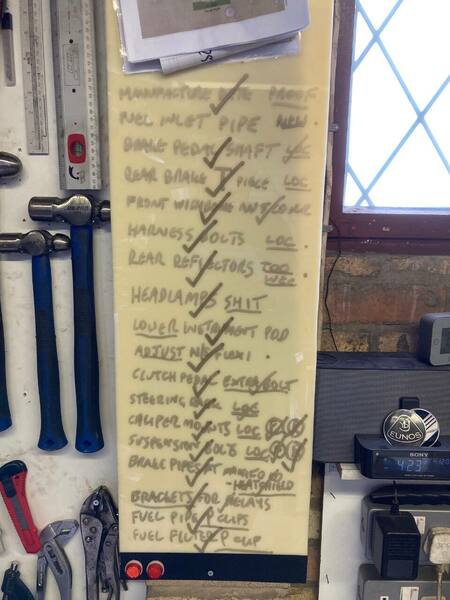 MANUFACTURE DATE PROOF
FUEL INLET PIPE NEW
BRAKE PEDAL SHAFT LOC
REAR BRAKE T PIECE LOC
FRONT
HARNESS BOLTS LOC
REAR REFLECTORS TOO
HEADLAMPS SHIT
LOWER INSTRUMENT POD
ADJUST
CLUTCH PEDAL EXTRA BOLT
STEERING RACK LOC
CALIPER MOUNTS LOC
SUSPENSION BOLTS LOC
BRAKE PIPES AT
HEATSHIELD
BRACKETS FOR RELAYS
FUEL PIPE P CLIPS
FUEL FILTER P CLIP
EUNOS
SONY
4:23